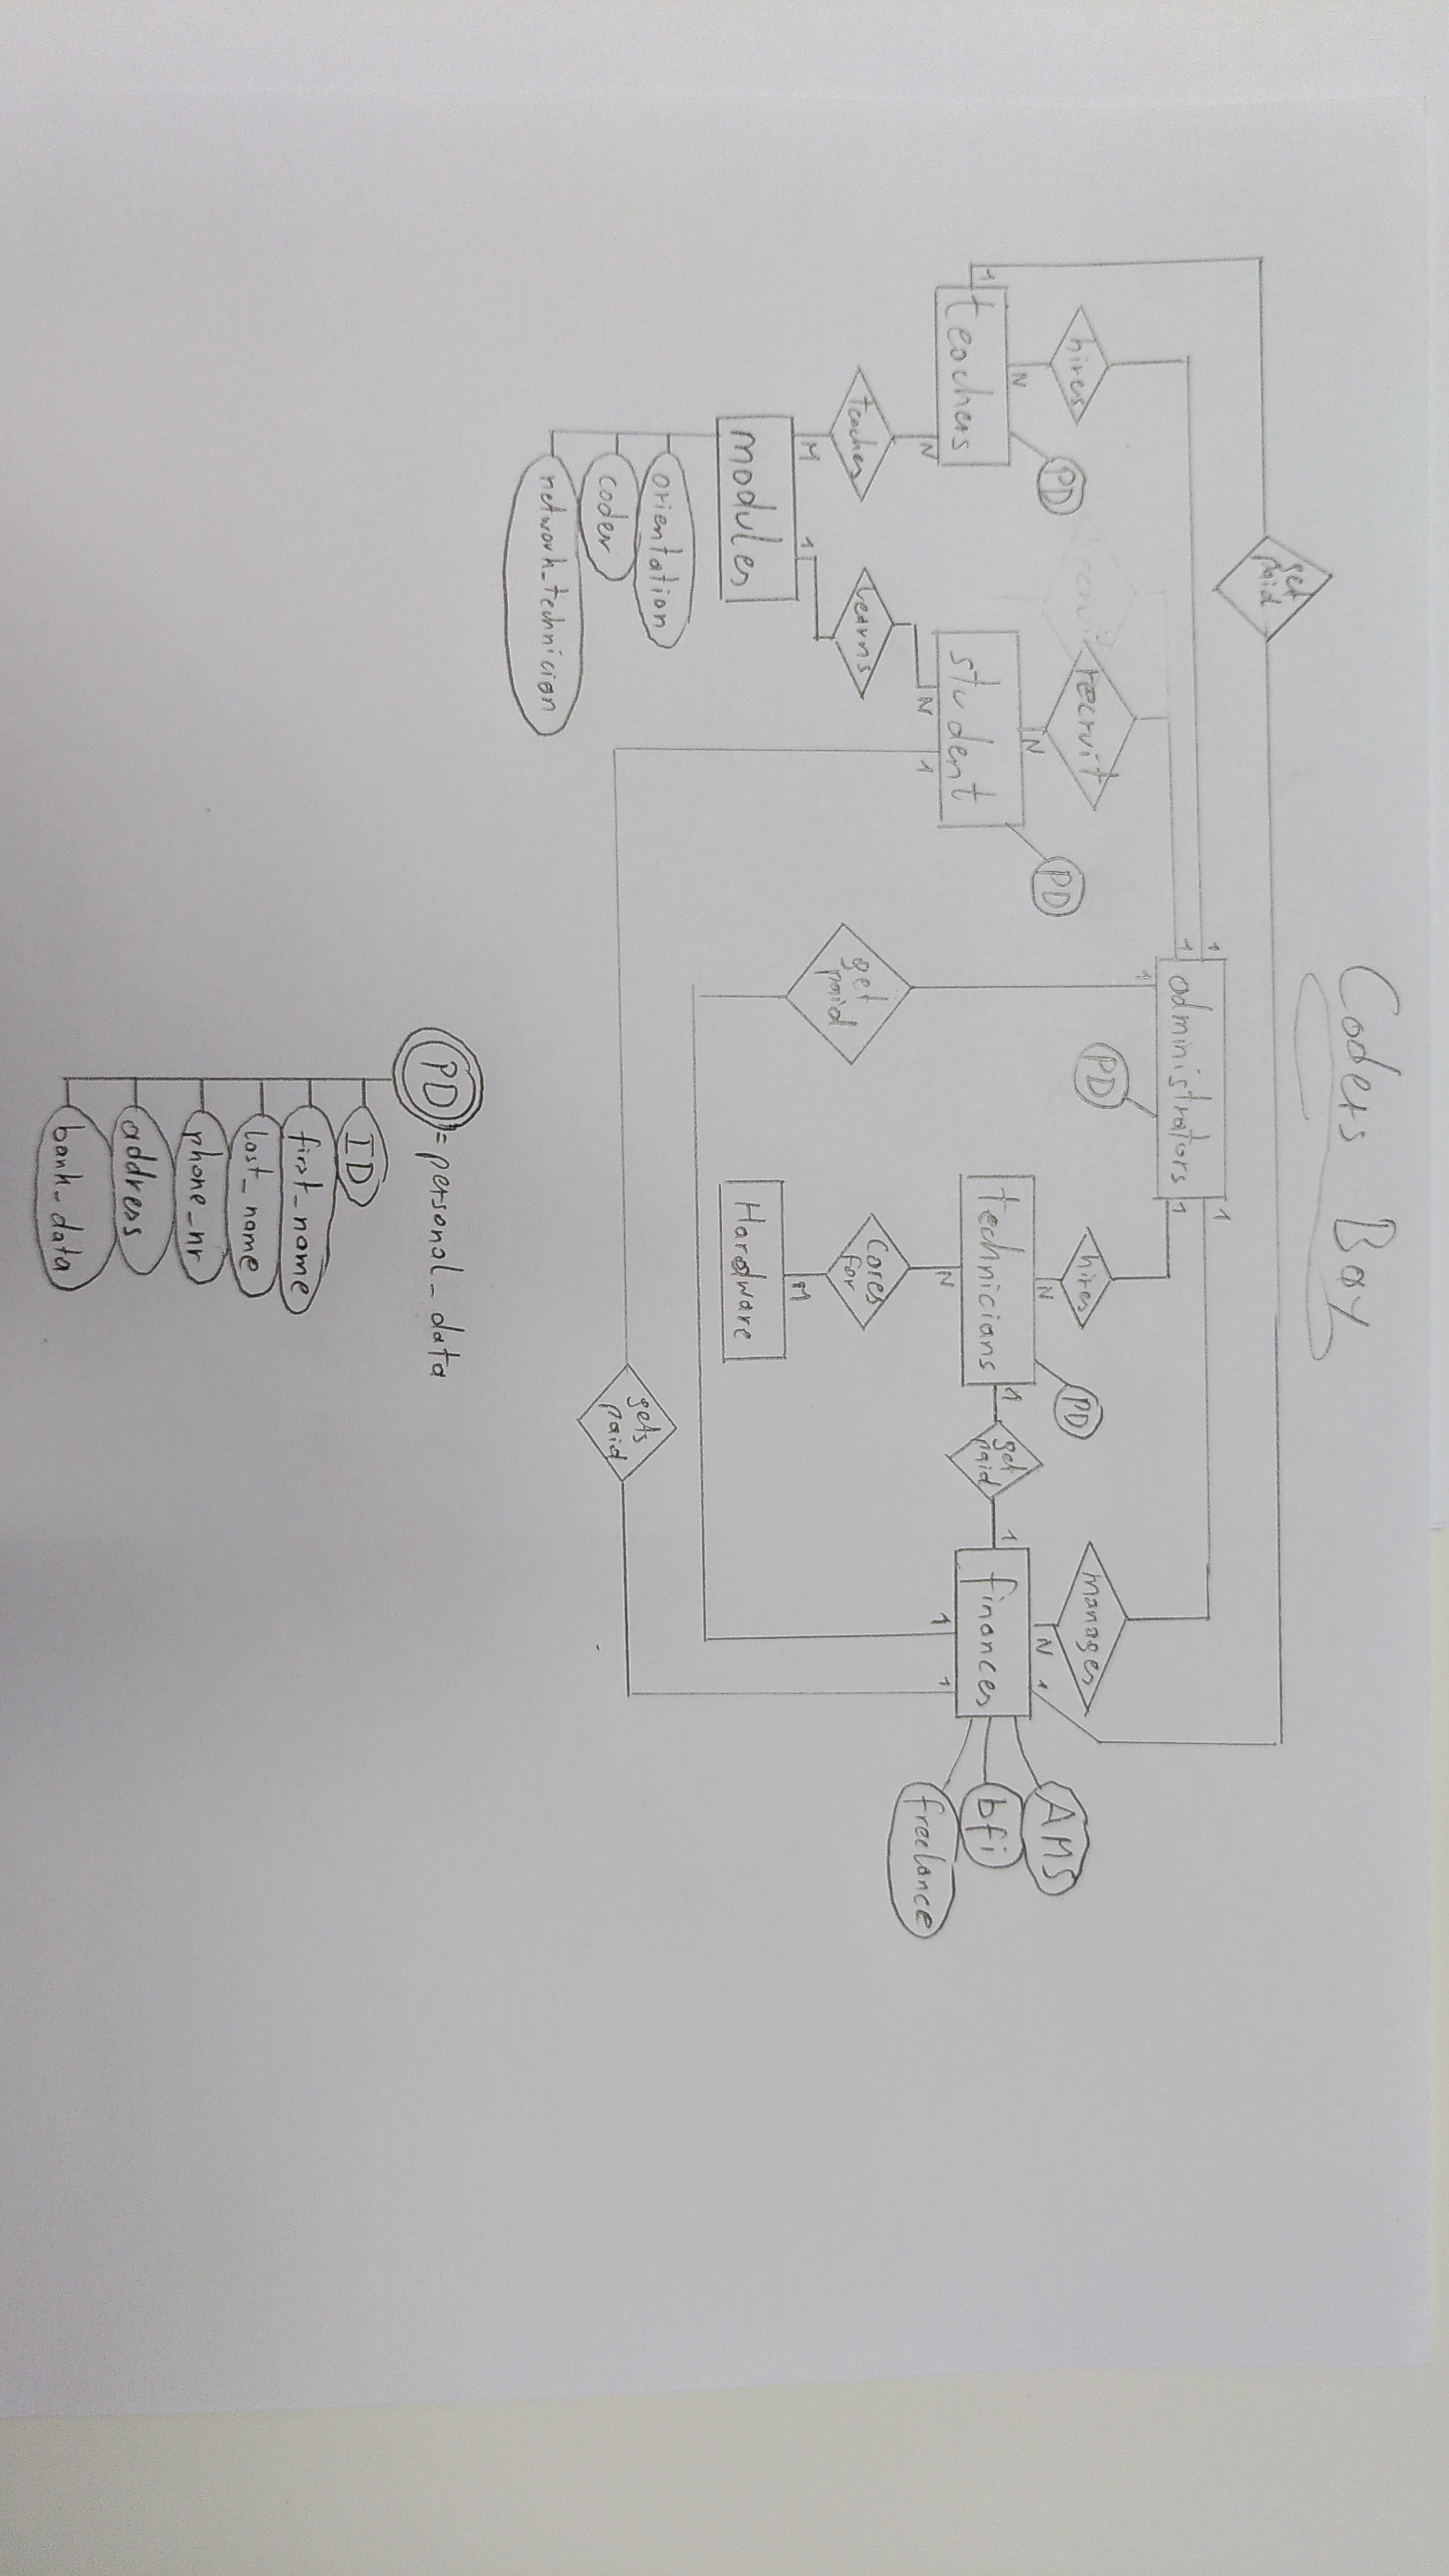 Coders Bay
get
paid
1
1
administrators
1
1
1
PD
hires
N
PD
recruit
recruit
N
PD
hires
N
PD
manages
N
1
AMS
bfi
freelance
1
teachers
N
student
N
1
technicians
1
get
paid
1
finances
N
1
1
teaches
M
learns
1
get
paid
Cares
for
M
modules
Hardware
orientation
coder
network_technician
gets
paid
PD = personal_data
ID
first_name
last_name
phone_nr
address
bank_data